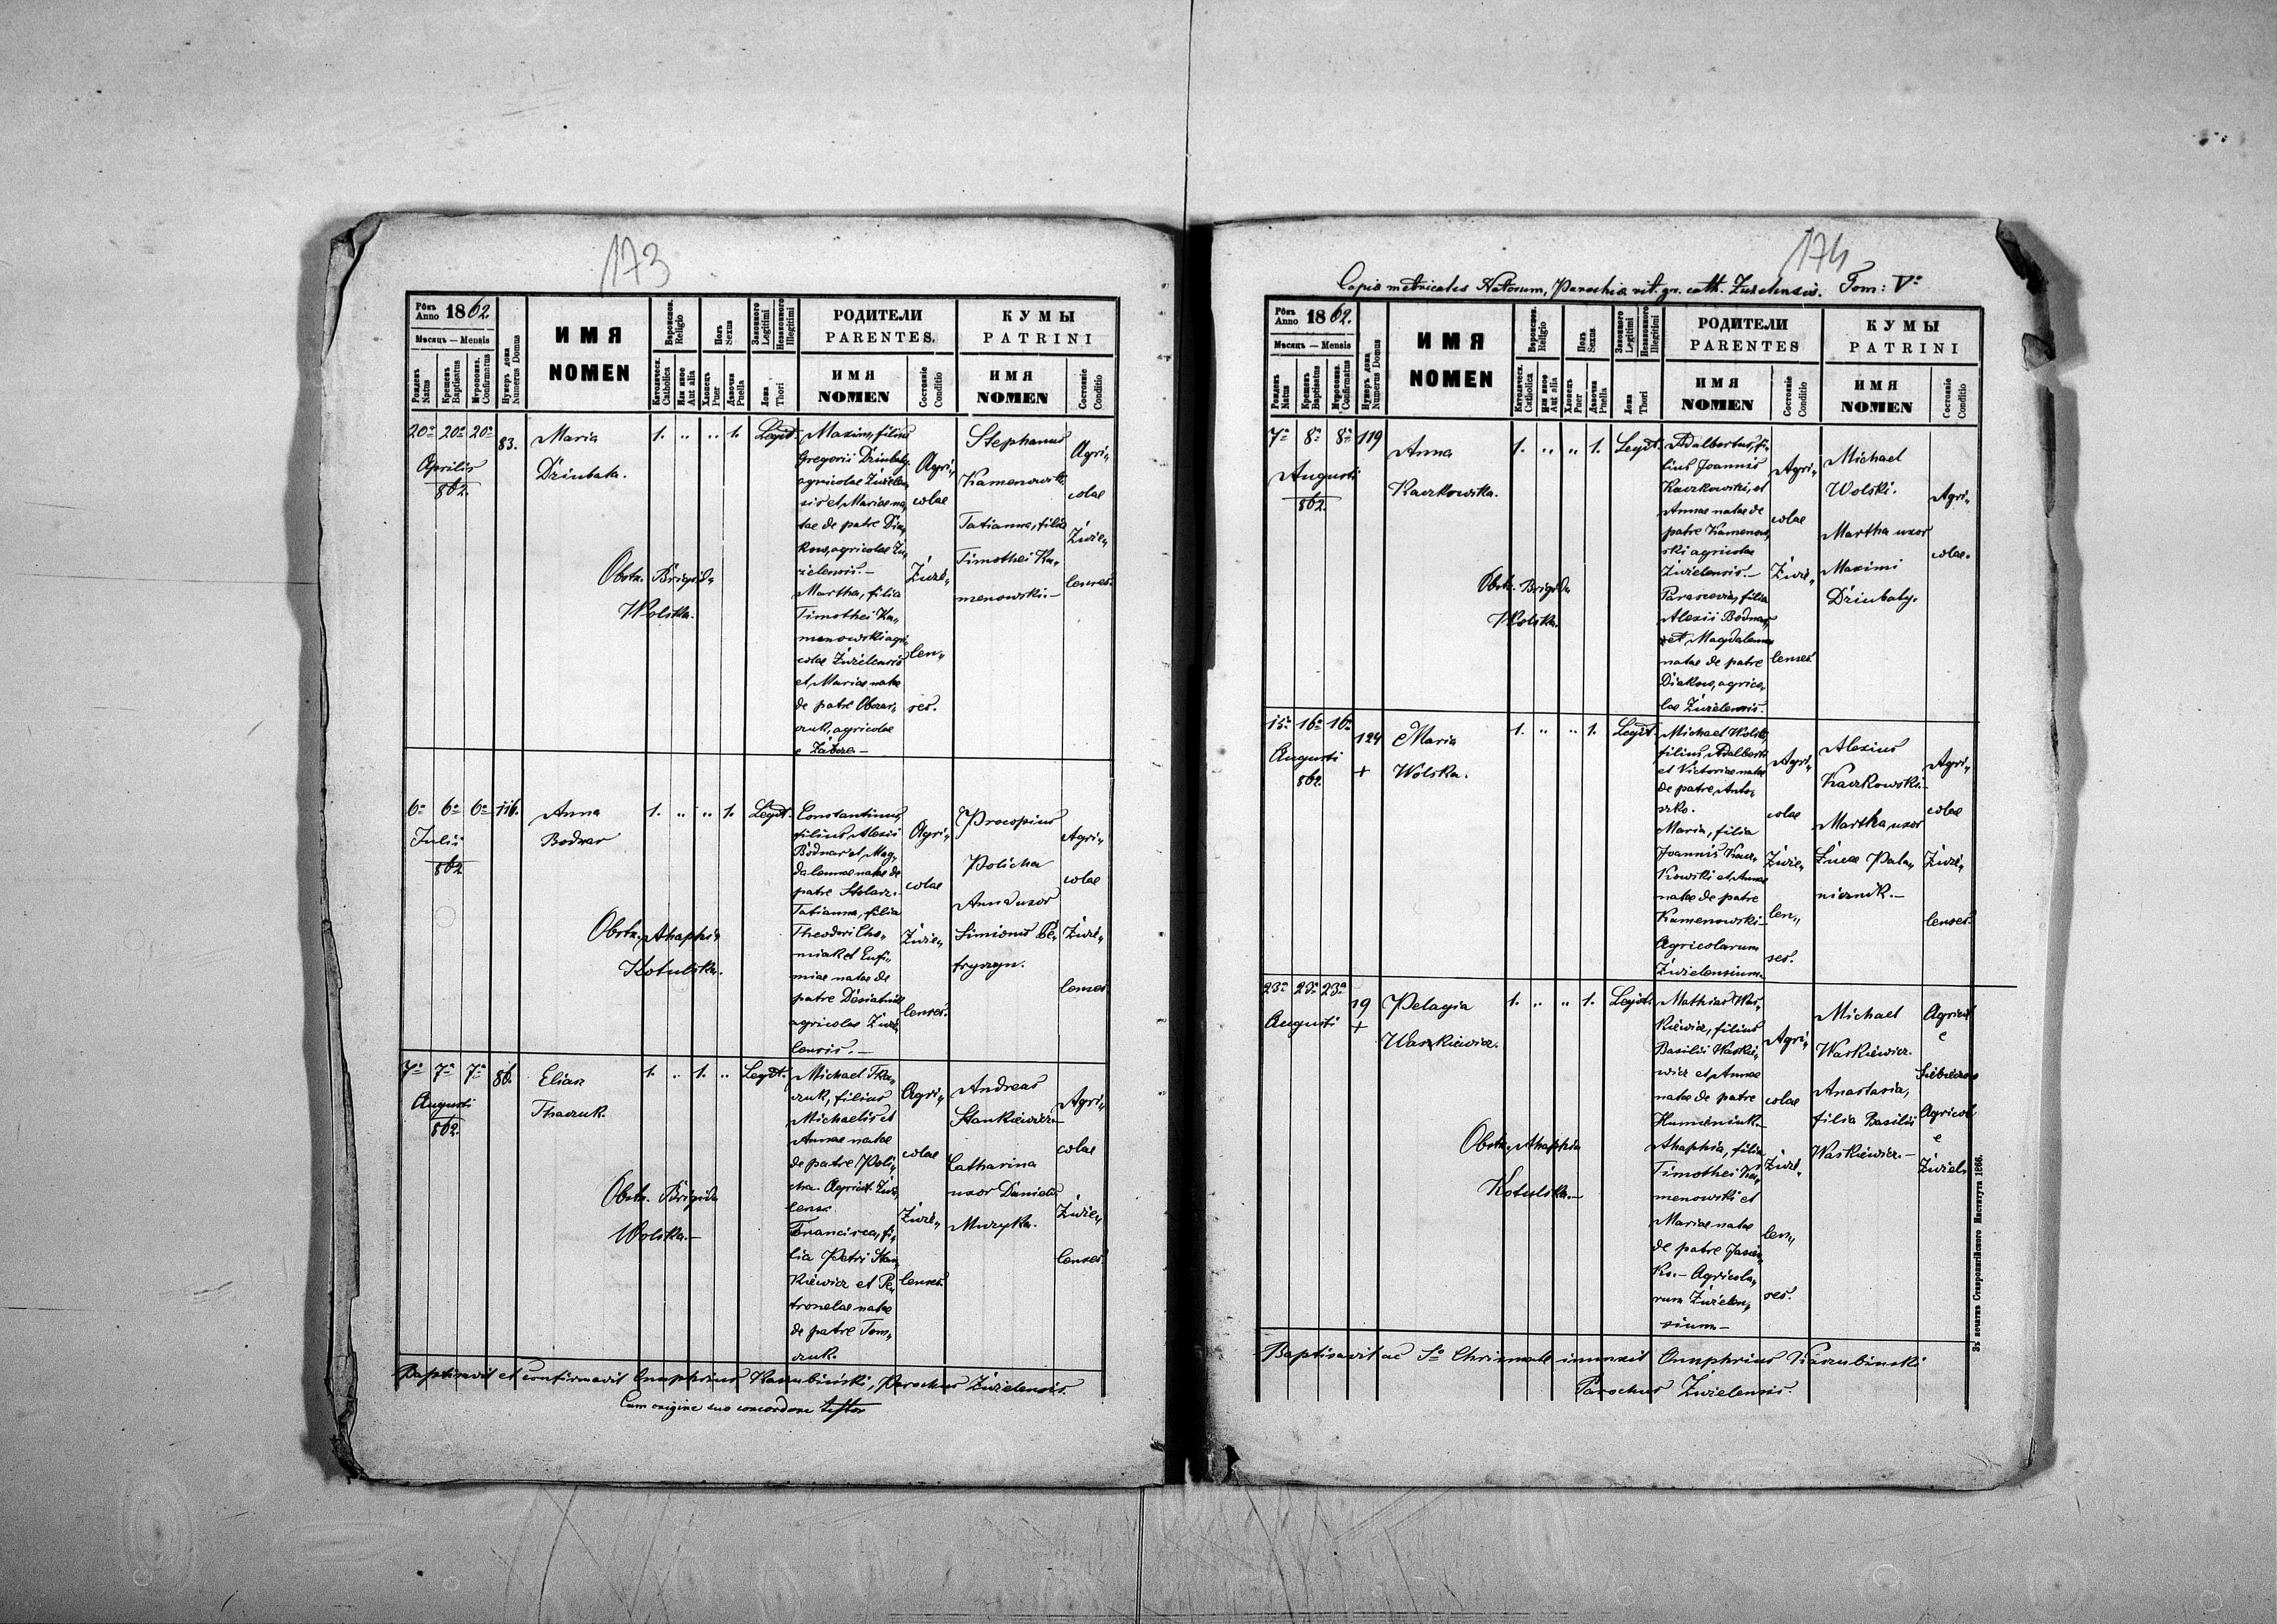 173
Рôкъ
Anno 1862.
Мѣсяцъ — Mensis
Рожденъ
Natus
Крещенъ
Baptisatus
Мѵропомаз.
Confirmatus
Нумеръ дома
Numerus Domus
ИМЯ
NOMEN
Вѣроиспов.
Religio
Католическ.
Catholica
Или иное
Aut alia
Полъ
Sexus
Хлопецъ
Puer
Дѣвочка
Puella
Законного
Legitimi
Незаконного
Illegitimi
Ложа
Thori
РОДИТЕЛИ
PARENTES.
ИМЯ
NOMEN
Состоянiе
Conditio
КУМЫ
PATRINI
ИМЯ
NOMEN
Состоянiе
Conditio
20ª 20ª 20ª
Aprilis
862.
83.
Maria
Dziubata.
Obstr. Brigida
Wolska.
1. „ „ 1.
Legit.
Maxim, filius
Gregorii Dziubaty
agricolae Zwzelen„
sis et Mariae na„
tae de patre Dia„
kow, agricolae Zw„
zelensis.—
Martha, filia
Timothei Ka„
menowski agri„
colae Zwzelensis
et Mariae natae
de patre
czuk, agricolae
e
Agri„
colae
Zwze„
len„
ses.
Stephanus
Kamenowski
Tatianna, filia
Timothei Ka„
menowski.—
Agri„
colae
Zwze„
lenses.
6ª 6ª 6ª
Julii
862
116.
Anna
Bodnar
Obstr. Ahaphia
Kotulska.
1. „ „ 1.
Legit.
Constantinus,
filius Alexii
Bodnar et Mag„
dalennae natae de
patre Stolarz.
Tatianna, filia
Theodori Cho„
miak et Eufi„
miae natae de
patre
agricolae Zwze„
lensis.—
Agri„
colae
Zwze„
lenses.
Procopius
Policha
Anna uxor
Simionis Pe„
tryszyn.
Agri„
colae
Zwze„
lenses
7ª 7ª 7ª
Augusti
862.
86.
Elias
Tkaczuk.
Obstr. Brigida
Wolska.—
1. „ 1. „
Legit.
Michael Tka„
czuk, filius
Michaelis et
Annae natae
de patre Poli„
cha. Agricol. Zwz„
lens.
Francisca, fi„
lia Petri Stan„
kiewicz et Pe„
tronelae natae
de patre Tom„
czuk.
Agri„
colae
Zwze„
lenses.
Andreas
Stankiewicz—
Catharina
uxor Danielis
Muzyka.
Agri„
colae
Zwze„
lenses.
Baptisavit et confirmavit Onuphrius Kaszubinski, Parochus Zwzelensis.
Cum origine suo concordare testor
174
Copia metricales Natorum, Parochiae rit. gr. cath. Zwzelensis. Tom: Vº
Рôкъ
Anno 1862.
Мѣсяцъ — Mensis
Рожденъ
Natus
Крещенъ
Baptisatus
Мѵропомаз.
Confirmatus
Нумеръ дома
Numerus Domus
ИМЯ
NOMEN
Вѣроиспов.
Religio
Католическ.
Catholica
Или иное
Aut alia
Полъ
Sexus
Хлопецъ
Puer
Дѣвочка
Puella
Законного
Legitimi
Незаконного
Illegitimi
Ложа
Thori
РОДИТЕЛИ
PARENTES
ИМЯ
NOMEN
Состоянiе
Conditio
КУМЫ
PATRINI
ИМЯ
NOMEN
Состоянiе
Conditio
7ª 8ª 8ª
Augusti
862.
119
Anna
Kaczkowska.
Obstr. Brigida
Wolska.
1. „ „ 1.
Legit.
Adalbertus, fi„
lius Joannis
Kaczkowski, et
Annae natae de
patre Kamenow„
ski agricolae
Zwzelensis.—
Parascevia, filia
Alexii Bodnar
et Magdalennae
natae de patre
Diakow, agrico„
lae Zwzelensis.
Agri„
colae
Zwze„
lenses.
Michael
Wolski.
Martha uxor
Maximi
Dziubaty.
Agri„
colae.
15ª 16ª 16ª
Augusti
862.
124
+
Maria
Wolska.
1. „ „ 1.
Legit.
Michael Wolski,
filius Adalberti
et Victoriae natae
de patre Anto„
szko.
Maria, filia
Joannis Kacz„
kowski et Annae
natae de patre
Kamenowski—
Agricolarum
Zwzelensium
Agri„
colae
Zwze„
len„
ses.
Alexius
Kaczkowski—
Martha, uxor
Lucae Pala„
niczuk.—
Agri„
colae
Zwze„
lenses.
23ª 23ª 23ª
Augusti
19
+
Pelagia
Waszkiewicz.
Obstr. Ahaphia
Kotulska.—
1. „ „ 1.
Legit.
Mathias Was„
kiewicz, filius
Basilii Waskie„
wicz et Annae
natae de patre
Humeniuk—
Ahaphia, filia
Timothei Ka„
menowski et
Mariae natae
de patre
ko.— Agricola„
rum Zwzelen„
sium—
Agri„
colae
Zwze„
len„
ses.
Michael
Waskiewicz.
Anastasia,
filia Basilii
Waskiewicz.—
Agricol
e
Agricol
e
Zwzel.
Baptisavit ac Sº Chrismate inunxit Onuphrius Kaszubinski
Parochus Zwzelensis.
Зъ печатнѣ Ставропигiйского Института 1866.